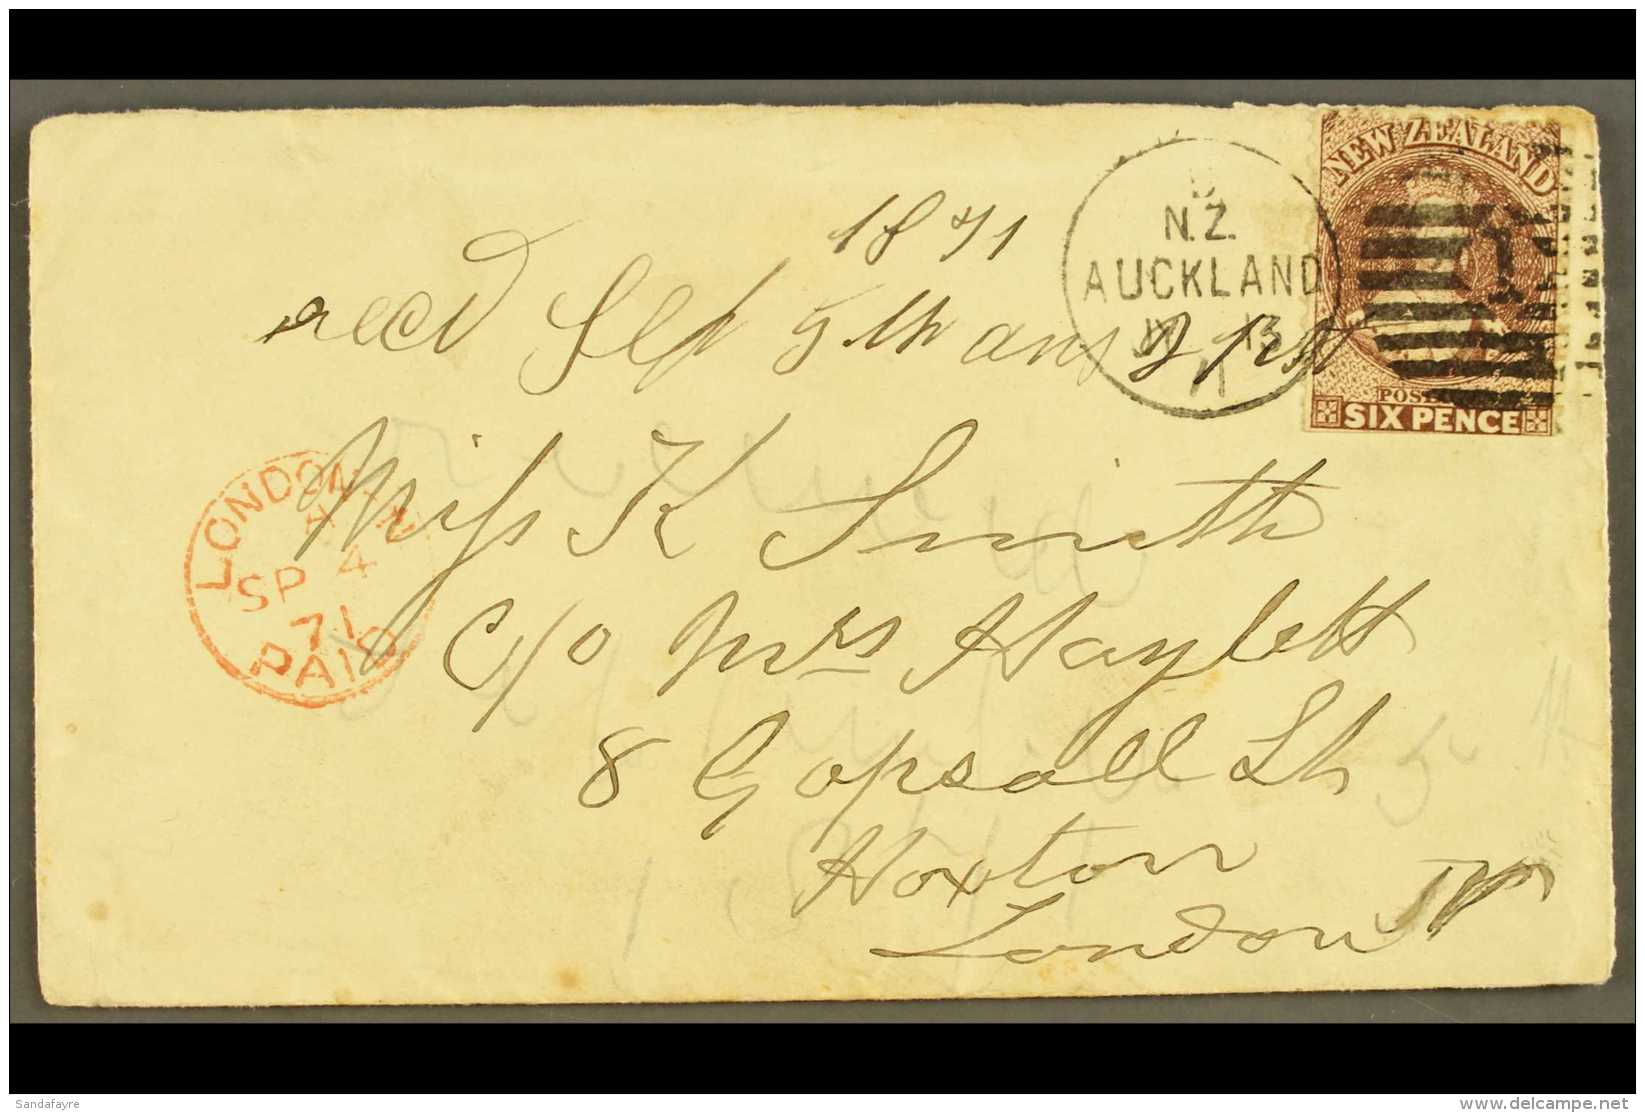 NEW ZEALAND
SIX PENCE
N.Z.
AUCKLAND
13
71
1871
recd Sep 5th ans
LONDON. N
A
SP 4
71
PAID
Miss K Smith
C/o Mrs Haylett
8 Gopsall St
Hoxton
London N
Sandafayre
delcampe.net